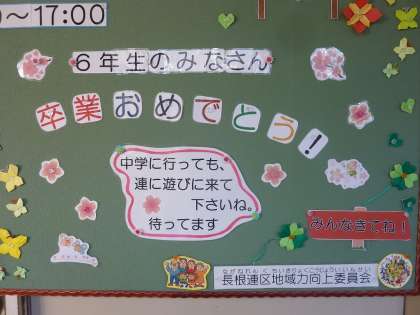 ～17:00
６年生のみなさん
卒業おめでとう！
中学に行っても、
連に遊びに来て
下さいね。
待ってます
みんなきてね！
ながねれんくちいきりょくこうじょういいんかい
長根連区地域力向上委員会